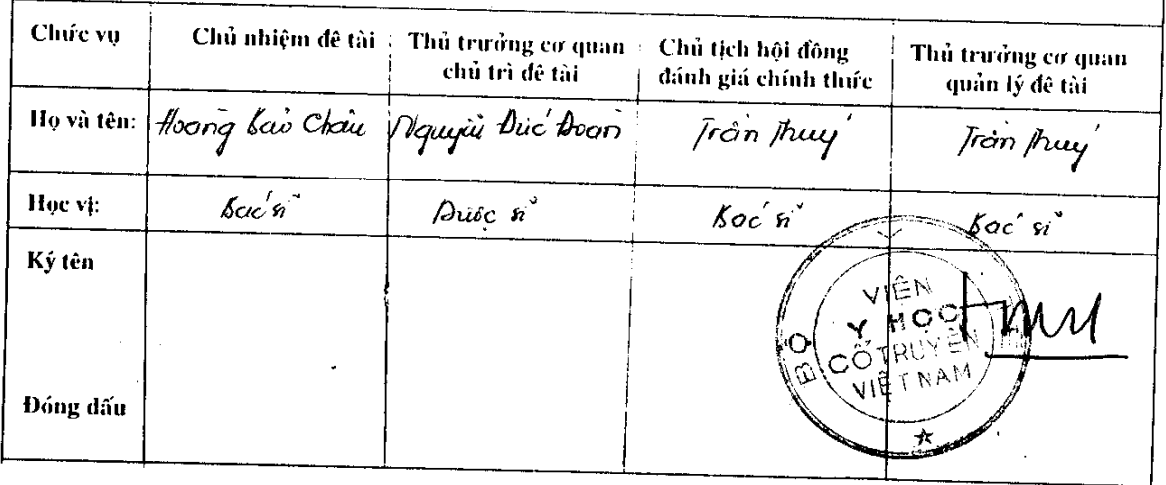 Chức vụ
Chủ nhiệm đề tài
Thủ trưởng cơ quan
chủ trì đề tài
Chủ tịch hội đồng
đánh giá chính thức
Thủ trưởng cơ quan
quản lý đề tài
Họ và tên:
Hoàng Bảo Châu
Nguyễn Đức Đoàn
Trần Thuý
Trần Thuý
Học vị:
Bác sĩ
Dược sĩ
Bác sĩ
Bác sĩ
Ký tên
Đóng dấu
BỘ
VIỆN
Y HỌC
CỔ TRUYỀN
VIỆT NAM